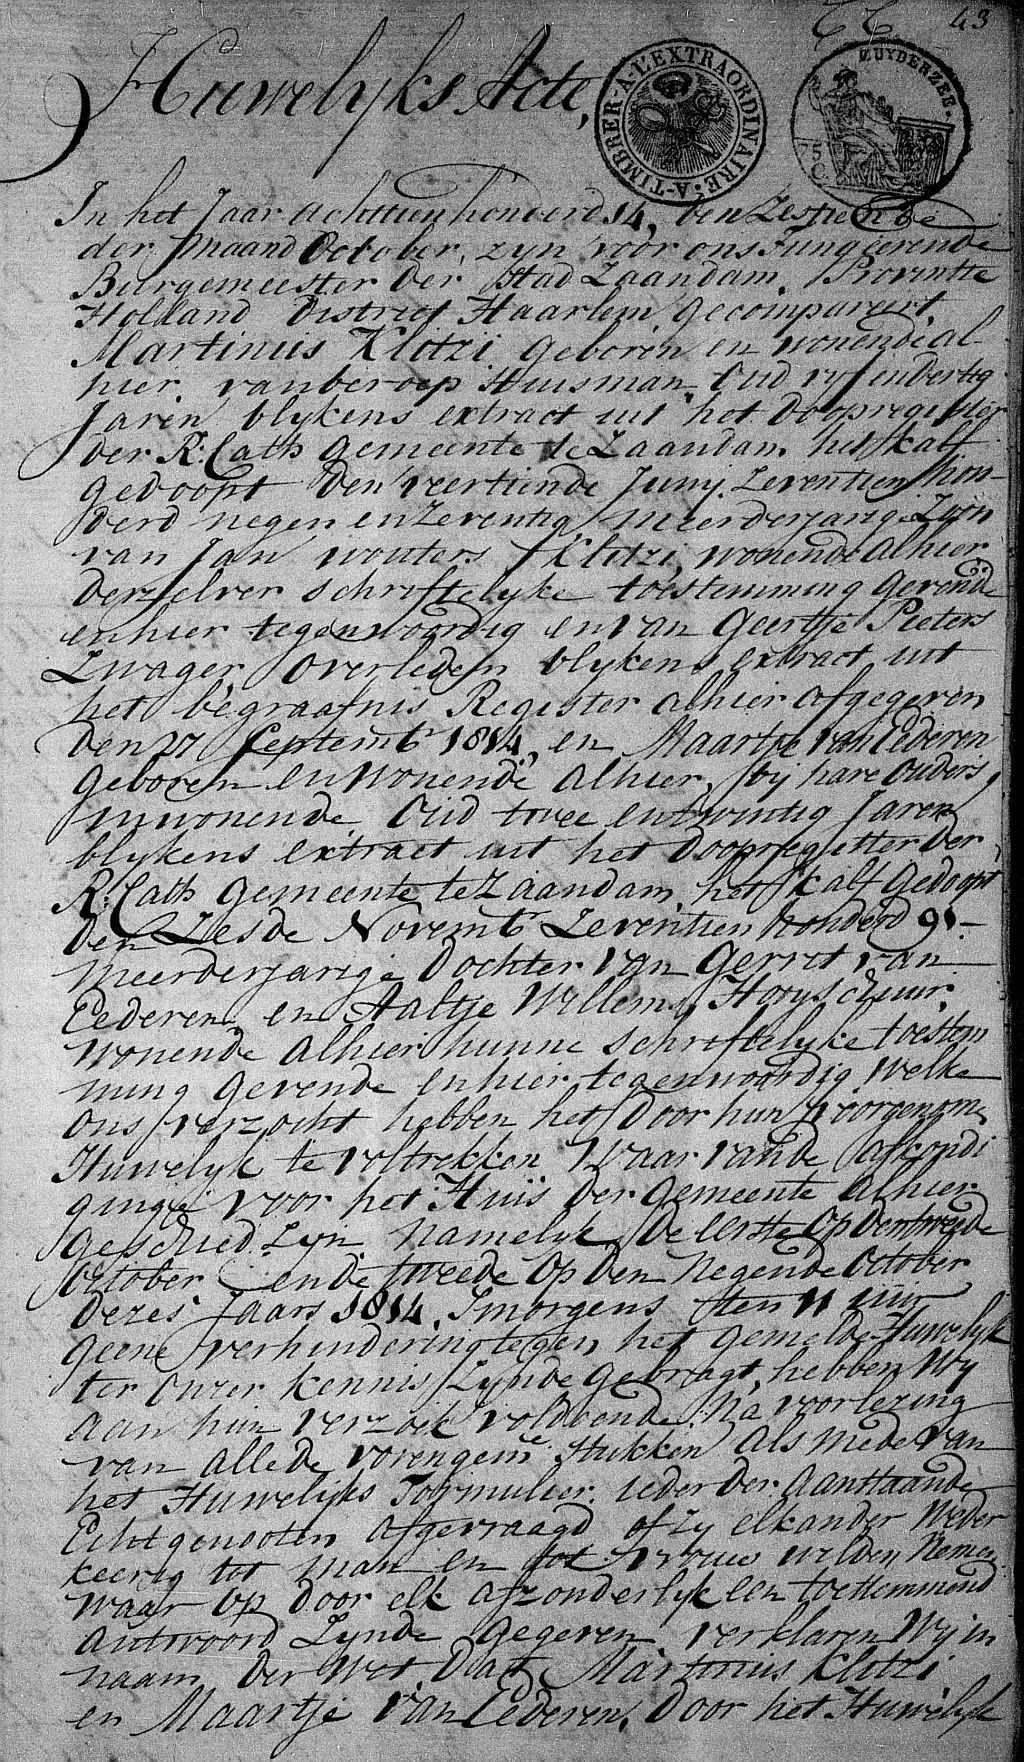 43
Huwelyks Acte,
TIMBRER-A-L'EXTRAORDINAIRE-A-
ZUYDERZEE
75 C.
In het Jaar achttienhonderd 14, den Zestiende
der Maand October, zyn voor ons Fungeerende
Burgemeester der Stad Zaandam, Provintie
Holland District Haarlem, gecompareert,
Martinus Klotzi geboren en wonende al-
hier, van beroep Huisman, Oud vyf en dertig
Jaren blykens extract uit het Doopregister
der R: Cath gemeente te Zaandam, het Kalf
gedoopt den veertiende Juny Zeventien hon-
derd negen en Zeventig, meerderjarige Zoon
van Jan Wouters Klotzi, wonende alhier
derzelver schriftelyke toestemming gevende
en hier tegenwoordig en van Geertje Pieters
Zwager, overleden blykens extract uit
het begraafnis Register alhier afgegeven
den 27 Septembr 1814, en Maartje van Eederen
geboren en wonende alhier, by hare ouders
inwonende, Oud twee en twintig Jaren
blykens extract uit het Doopregister der
R: Cath gemeente te Zaandam, het Kalf gedoopt
den Zesde Novembr Zeventien honderd 91-
meerderjarige Dochter van Gerrit van
Eederen, en Aaltje Willems Hooyschuur,
wonende alhier hunne schriftelyke toestem
ming gevende en hier tegenwoordig, Welke
ons verzocht hebben het door hun voorgenome
Huwelyk te voltrekken Waar van de afkondi
ginge voor het Huis der gemeente alhier
geschied Zyn, namelyk de eerste op den tweede
October en de tweede op den Negende October
dezes Jaars 1814, Smorgens ten 11 uur
geene verhindering tegen het gemelde Huwelyk
ter onzer kennis Zynde gebragt, hebben Wy
aan hun verzoek voldoende, Na voorlezing
van alle de vorengeme Stukken als mede van
het Huwelyks Formulier, ieder der aanstaande
Echtgenooten afgevraagd of Zy elkander Weder
keerig tot man en tot vrouw wilden Nemen,
waar op door elk afzonderlyk een toestemmend
antwoord Zynde gegeven verklaren Wy in
naam der Wet, Dat, Martinus Klotzi
en Maartje van Eederen, door het Huwelyk